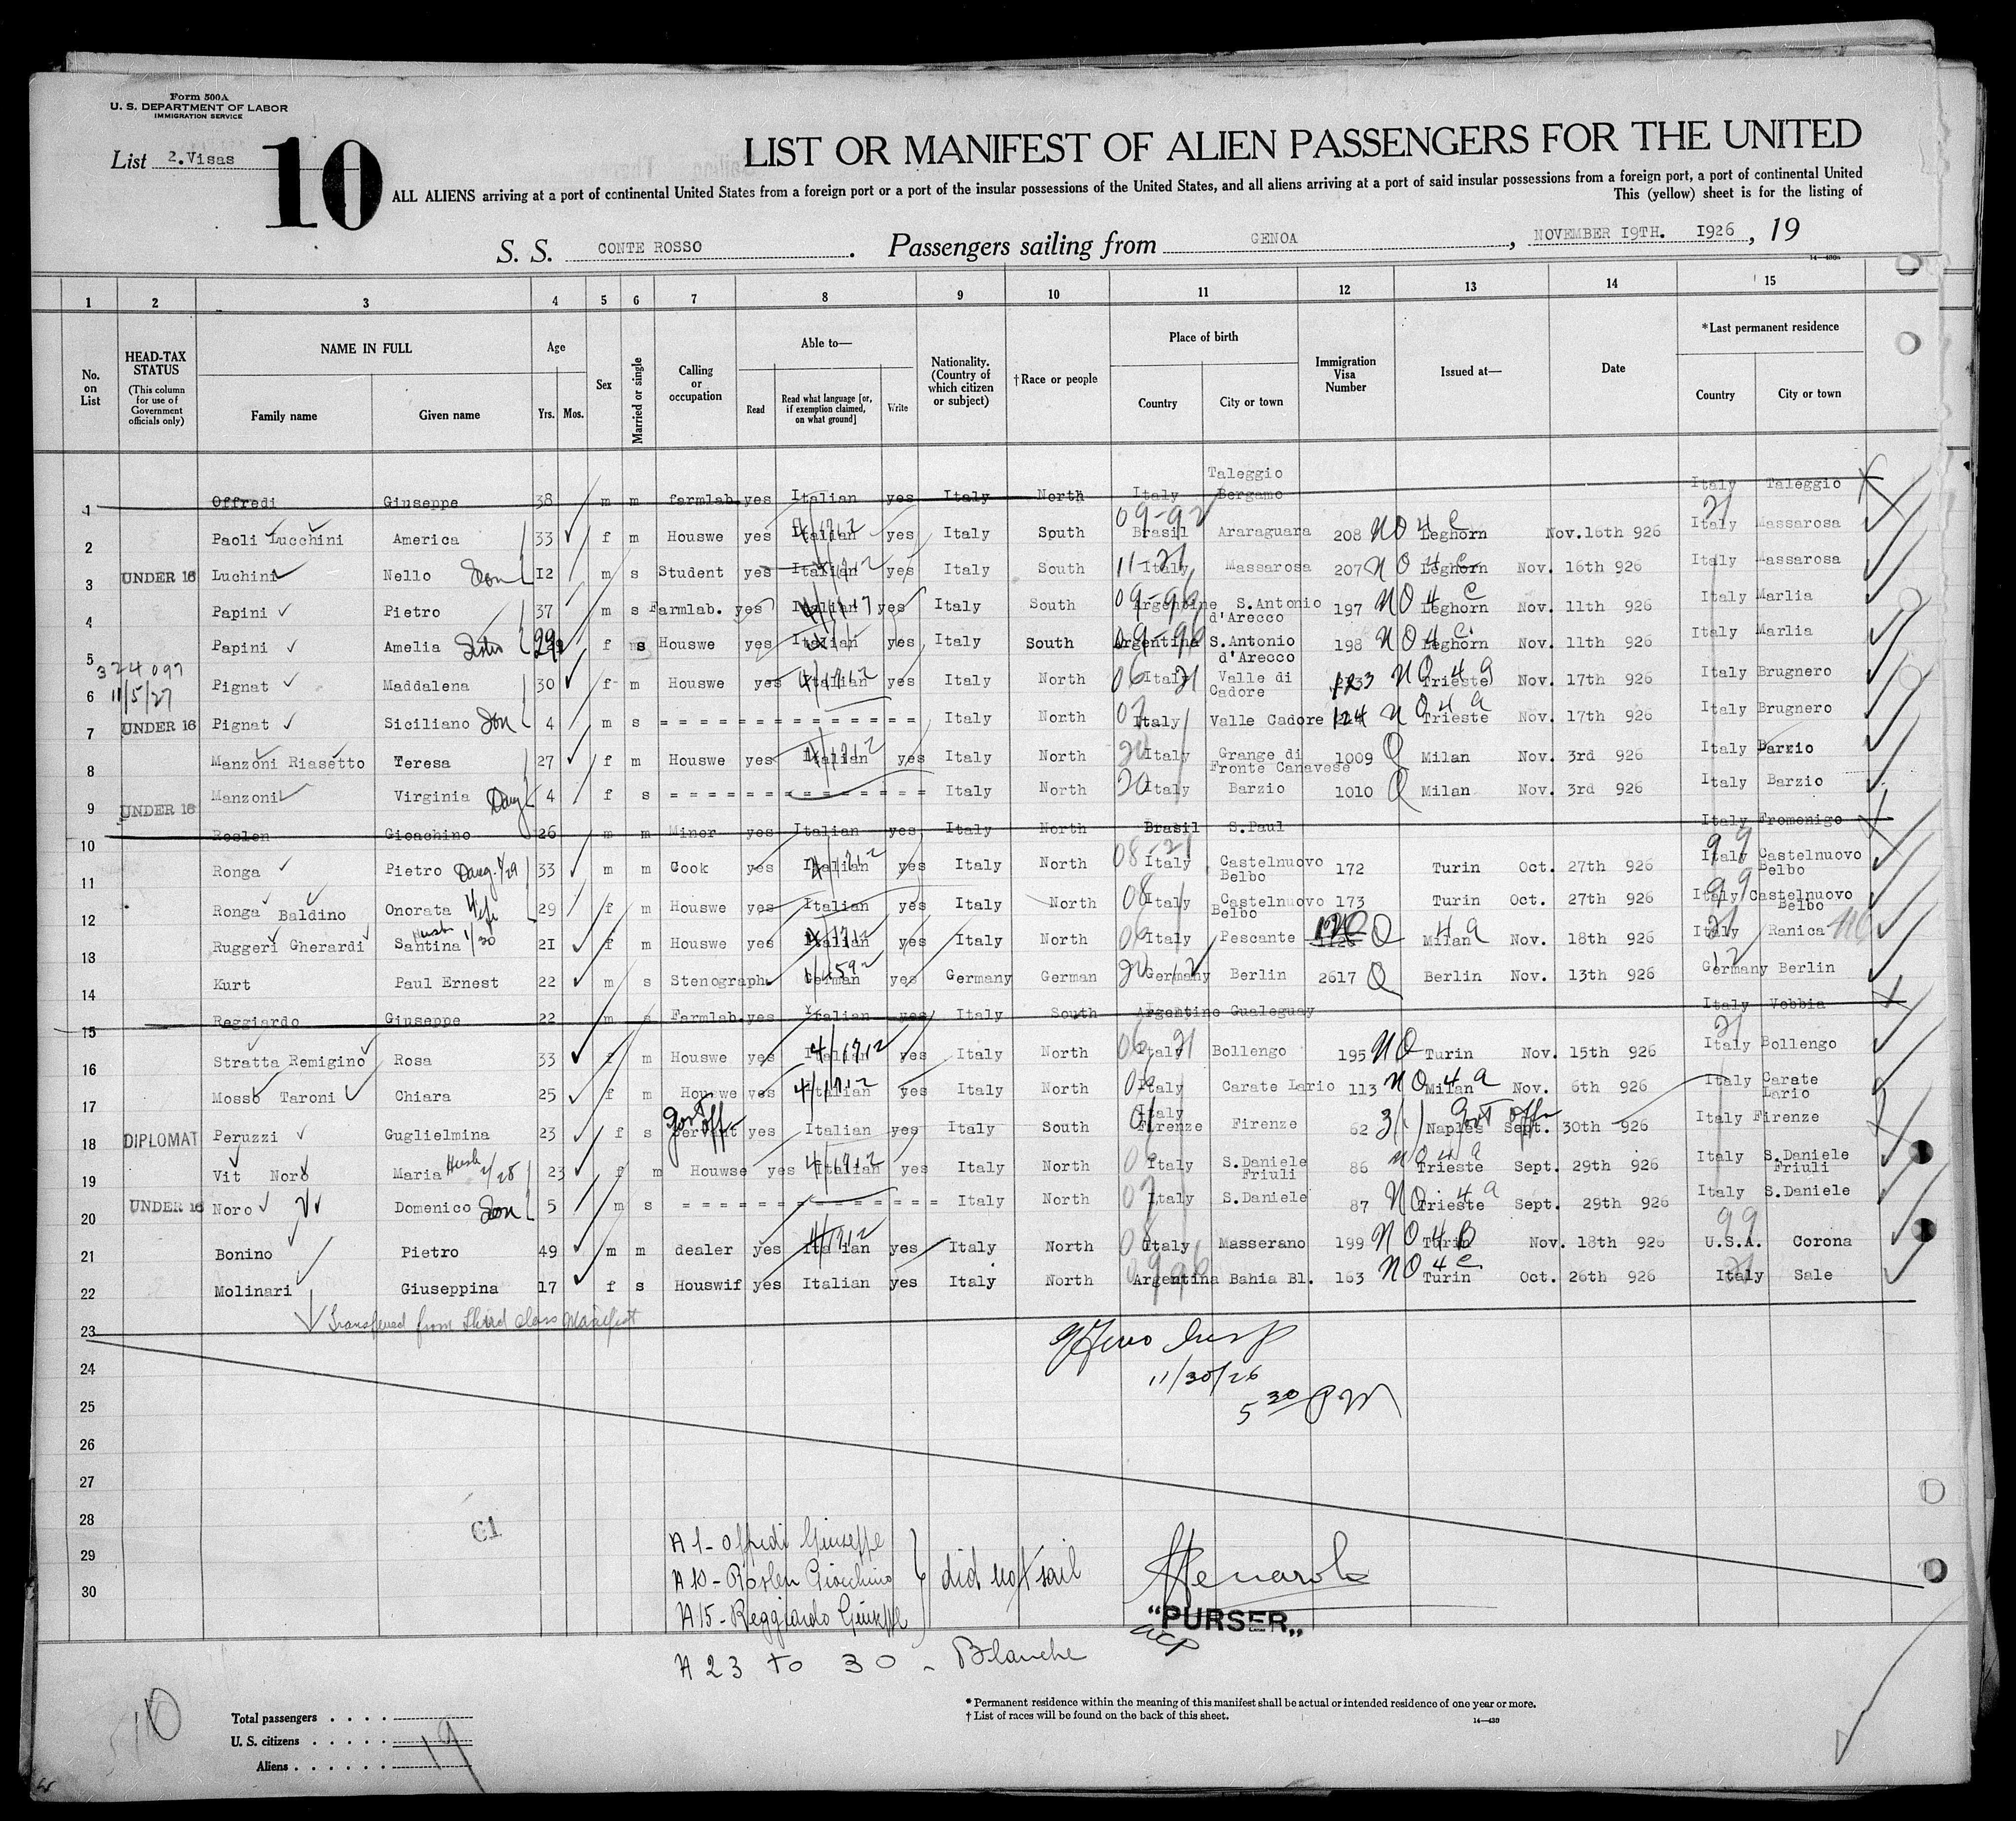 Form 500A
U. S. DEPARTMENT OF LABOR
IMMIGRATION SERVICE
List 2.Visas
10
LIST OR MANIFEST OF ALIEN PASSENGERS FOR THE UNITED
ALL ALIENS arriving at a port of continental United States from a foreign port or a port of the insular possessions of the United States, and all aliens arriving at a port of said insular possessions from a foreign port, a port of continental United
This (yellow) sheet is for the listing of
S. S. CONTE ROSSO. Passengers sailing from GENOA, NOVEMBER I9TH. I926, 19
14—430a
1 2 3 4 5 6 7 8 9 10 11 12 13 14 15
No. on List
HEAD-TAX STATUS
(This column for use of Government officials only)
NAME IN FULL
Family name Given name
Age
Yrs. Mos.
Sex
Married or single
Calling or occupation
Able to—
Read
Read what language [or, if exemption claimed, on what ground]
Write
Nationality. (Country of which citizen or subject)
†Race or people
Place of birth
Country City or town
Immigration Visa Number
Issued at—
Date
*Last permanent residence
Country City or town
1 Offredi Giuseppe 38 m m farmlab. yes Italian yes Italy North Italy Taleggio Bergamo Italy Taleggio
2 Paoli Lucchini America 33 f m Houswe yes Italian yes Italy South Brasil Araraguara 208 NO 4 C Leghorn Nov.16th 926 Italy Massarosa
3 UNDER 16 Luchini Nello Son I2 m s Student yes Italian yes Italy South Italy Massarosa 207 NO 4 C Leghorn Nov. 16th 926 Italy Massarosa
4 Papini Pietro 37 m s Farmlab. yes Italian yes Italy South Argentine S.Antonio d'Arecco 197 NO 4 C Leghorn Nov. 11th 926 Italy Marlia
5 Papini Amelia Sister 29 f s Houswe yes Italian yes Italy South Argentina S.Antonio d'Arecco 198 NO 4 C Leghorn Nov. 11th 926 Italy Marlia
324097
11/5/27
6 Pignat Maddalena 30 f m Houswe yes Italian yes Italy North Italy Valle di Cadore 123 NO 4 a Trieste Nov. 17th 926 Italy Brugnero
7 UNDER 16 Pignat Siciliano Son 4 m s Italy North Italy Valle Cadore 124 NO 4 a Trieste Nov. 17th 926 Italy Brugnero
8 Manzoni Riasetto Teresa 27 f m Houswe yes Italian yes Italy North Italy Grange di Fronte Canavese 1009 Q Milan Nov. 3rd 926 Italy Barzio
9 UNDER 16 Manzoni Virginia Daug 4 f s Italy North Italy Barzio 1010 Q Milan Nov. 3rd 926 Italy Barzio
10 Roslen Gioachino 26 m m Miner yes Italian yes Italy North Brasil S.Paul Italy Fromenigo
11 Ronga Pietro 33 m m Cook yes Italian yes Italy North Italy Castelnuovo Belbo 172 Turin Oct. 27th 926 Italy Castelnuovo Belbo
12 Ronga Baldino Onorata Wife 29 f m Houswe yes Italian yes Italy North Italy Castelnuovo Belbo 173 Turin Oct. 27th 926 Italy Castelnuovo Belbo
13 Ruggeri Gherardi Santina Husb 1/30 2I f m Houswe yes Italian yes Italy North Italy Pescante Q Milan 4 a Nov. 18th 926 Italy Ranica
14 Kurt Paul Ernest 22 m s Stenograph. yes German yes Germany German Germany Berlin 2617 Q Berlin Nov. 13th 926 Germany Berlin
15 Reggiardo Giuseppe 22 m s Farmlab. yes Italian yes Italy South Argentine Gualeguay Italy Vobbia
16 Stratta Remigino Rosa 33 f m Houswe yes Italian yes Italy North Italy Bollengo 195 NO Turin Nov. 15th 926 Italy Bollengo
17 Mosso Taroni Chiara 25 f m Houswe yes Italian yes Italy North Italy Carate Lario 113 NO 4 a Milan Nov. 6th 926 Italy Carate Lario
18 DIPLOMAT Peruzzi Guglielmina 23 f s Servant Govt off. yes Italian yes Italy South Italy Firenze Firenze 62 3(1) Naples Govt Off Sept. 30th 926 Italy Firenze
19 Vit Noro Maria Husb 23 f m Houwse yes Italian yes Italy North Italy S.Daniele Friuli 86 NO 4 a Trieste Sept. 29th 926 Italy S.Daniele Friuli
20 UNDER 16 Noro Domenico Son 5 m s Italy North Italy S.Daniele 87 NO 4 a Trieste Sept. 29th 926 Italy S.Daniele
21 Bonino Pietro 49 m m dealer yes Italian yes Italy North Italy Masserano 199 NO 4 B Turin Nov. 18th 926 U.S.A. Corona
22 Molinari Giuseppina 17 f s Houswif yes Italian yes Italy North Argentina Bahia Bl. 163 NO 4 c Turin Oct. 26th 926 Italy Sale
Transferred from Third Class Manifest
23
24
11/30/26
25
5 30 PM
26
27
28
61
29
30
A 1 - Offredi Giuseppe
A 10 - Roslen Giocchino
A 15 - Reggiardo Giuseppe
did not sail
"PURSER"
A 23 to 30 - Blanche
Total passengers
U. S. citizens
Aliens
19
10
* Permanent residence within the meaning of this manifest shall be actual or intended residence of one year or more.
† List of races will be found on the back of this sheet.
14—430